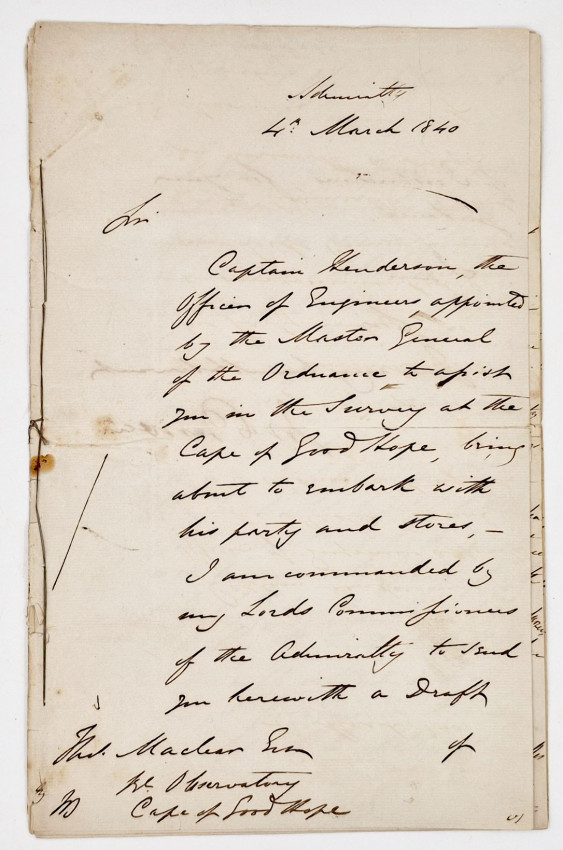 Admiralty
4th March 1840
Sir
Captain Henderson, the
Officer of Engineers, appointed
by the Master General
of the Ordnance to assist
you in the Survey at the
Cape of Good Hope, being
about to embark with
his party and stores, –
I am commanded by
my Lords Commissioners
of the Admiralty to send
you herewith a Draft
of
Thos. Maclear Esq
Rl. Observatory
Cape of Good Hope